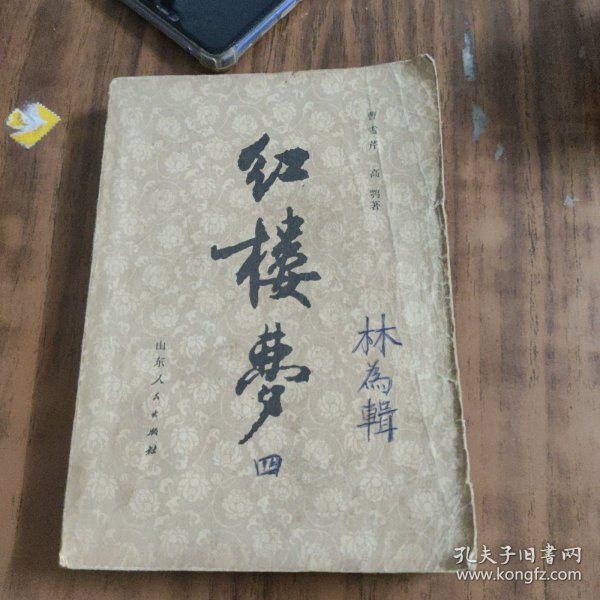 曹雪芹 高鹗著
红楼梦
四
山东人民出版社
林為輯
孔夫子旧书网
www.kongfz.com